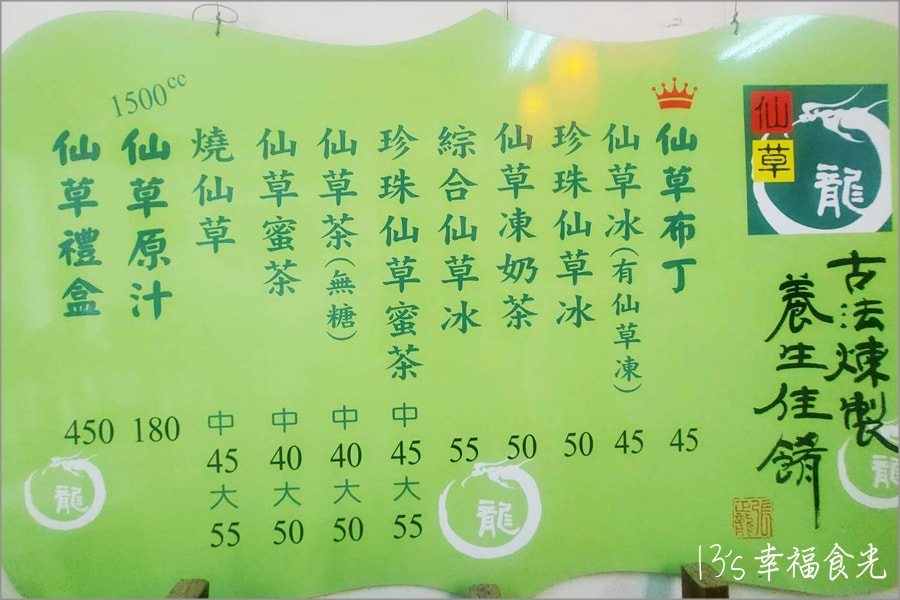 仙草
龍
古法煉製
養生佳餚
仙草布丁 45
仙草冰(有仙草凍) 45
珍珠仙草冰 50
仙草凍奶茶 50
綜合仙草冰 55
珍珠仙草蜜茶 中 45 大 55
仙草茶(無糖) 中 40 大 50
仙草蜜茶 中 40 大 50
燒仙草 中 45 大 55
1500cc
仙草原汁 180
仙草禮盒 450
龍
龍
龍
13's幸福食光